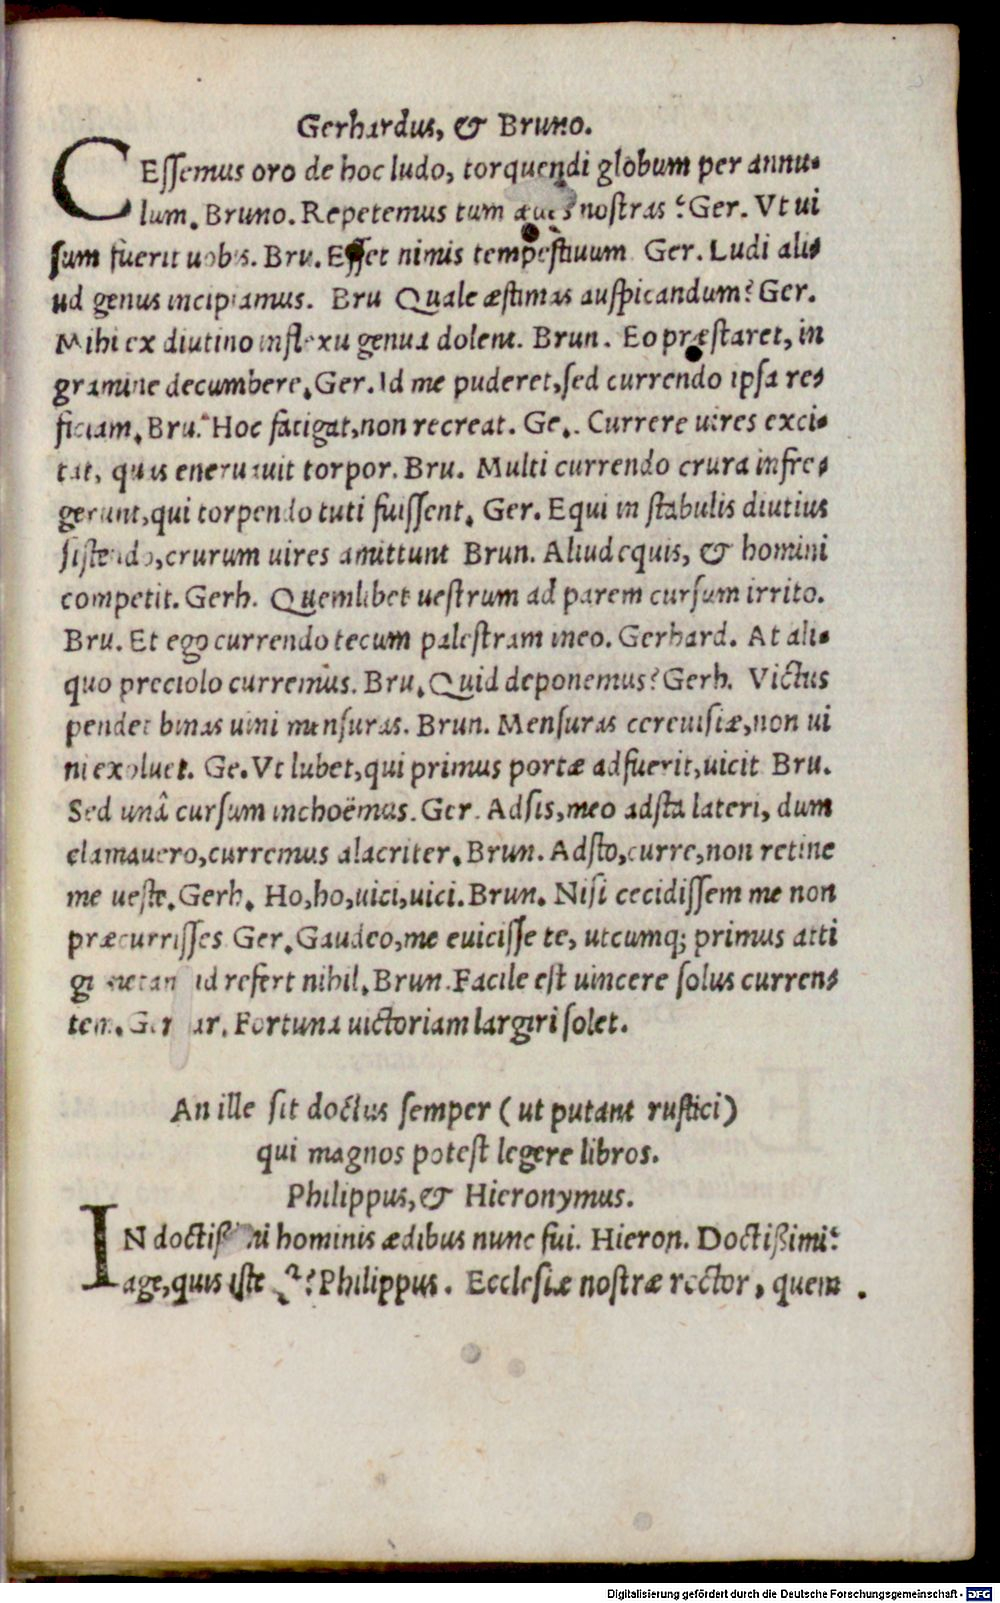 Gerhardus, & Bruno.
CEssemus oro de hoc ludo, torquendi globum per annu-
lum. Bruno. Repetemus tum nostras? Ger. Vt ui
sum fuerit uobis. Bru. Esset nimis tempestiuum Ger. Ludi ali-
ud genus incipiamus. Bru Quale æstimas auspicandum? Ger.
Mihi ex diutino inflexu genua dolent. Brun. Eo præstaret, in
gramine decumbere. Ger. Id me puderet, sed currendo ipsa re-
ficiam. Bru. Hoc fatigat, non recreat. Ge.. Currere uires exci-
tat, quas eneruauit torpor. Bru. Multi currendo crura infre-
gerunt, qui torpendo tuti fuissent. Ger. Equi in stabulis diutius
sistendo, crurum uires amittunt Brun. Aliud equis, & homini
competit. Gerh. Quemlibet uestrum ad parem cursum irrito.
Bru. Et ego currendo tecum palestram ineo. Gerhard. At ali-
quo preciolo curremus. Bru. Quid deponemus? Gerh. Victus
pendet binas uini mensuras. Brun. Mensuras cereuisiæ, non ui
ni exoluet. Ge. Vt lubet, qui primus portæ adfuerit, uicit Bru.
Sed unâ cursum inchoëmus. Ger. Adsis, meo adsta lateri, dum
clamauero, curremus alacriter. Brun. Adsto, curre, non retine
me ueste. Gerh. Ho, ho, uici, uici. Brun. Nisi cecidissem me non
præcurrisses Ger. Gaudeo, me euicisse te, utcumq; primus atti
gi metam id refert nihil. Brun. Facile est uincere solus curren-
tem. Gerhar. Fortuna uictoriam largiri solet.
An ille sit doctus semper (ut putant rustici)
qui magnos potest legere libros.
Philippus, & Hieronymus.
IN doctißimi hominis ædibus nunc fui. Hieron. Doctißimi?
age, quis iste ? Philippus. Ecclesiæ nostræ rector, quem .
Digitalisierung gefördert durch die Deutsche Forschungsgemeinschaft - DFG